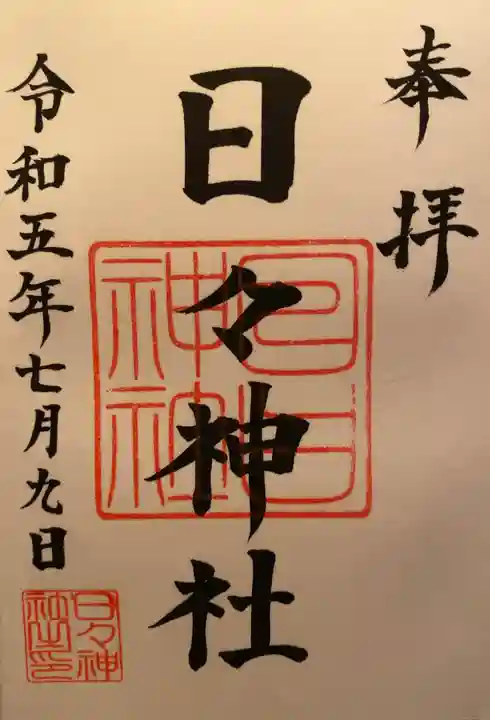 奉拝
日々神社
日日神社
令和五年七月九日
日々神社印